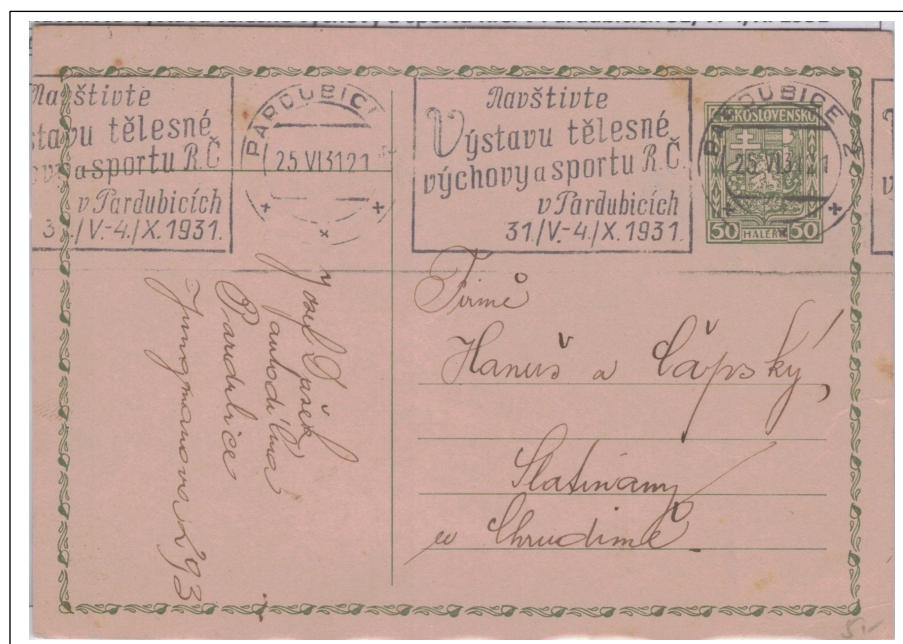 Navštivte
stavu tělesné
a sportu R.Č
v Pardubicích
/V.-4./X. 1931.
PARDUBICE
25.VI31 21
Navštivte
Výstavu tělesné
výchovy a sportu R.Č.
v Pardubicích
31./V.-4./X. 1931.
ČESKOSLOVENSKO
PARDUBICE 2
25.VI31 21
50 HALÉŘŮ 50
Josef Dušek
autodílna
Pardubice
Jungmanova 293
Firmě
Hanuš a Čápský
Slatiňany
u Chrudimě